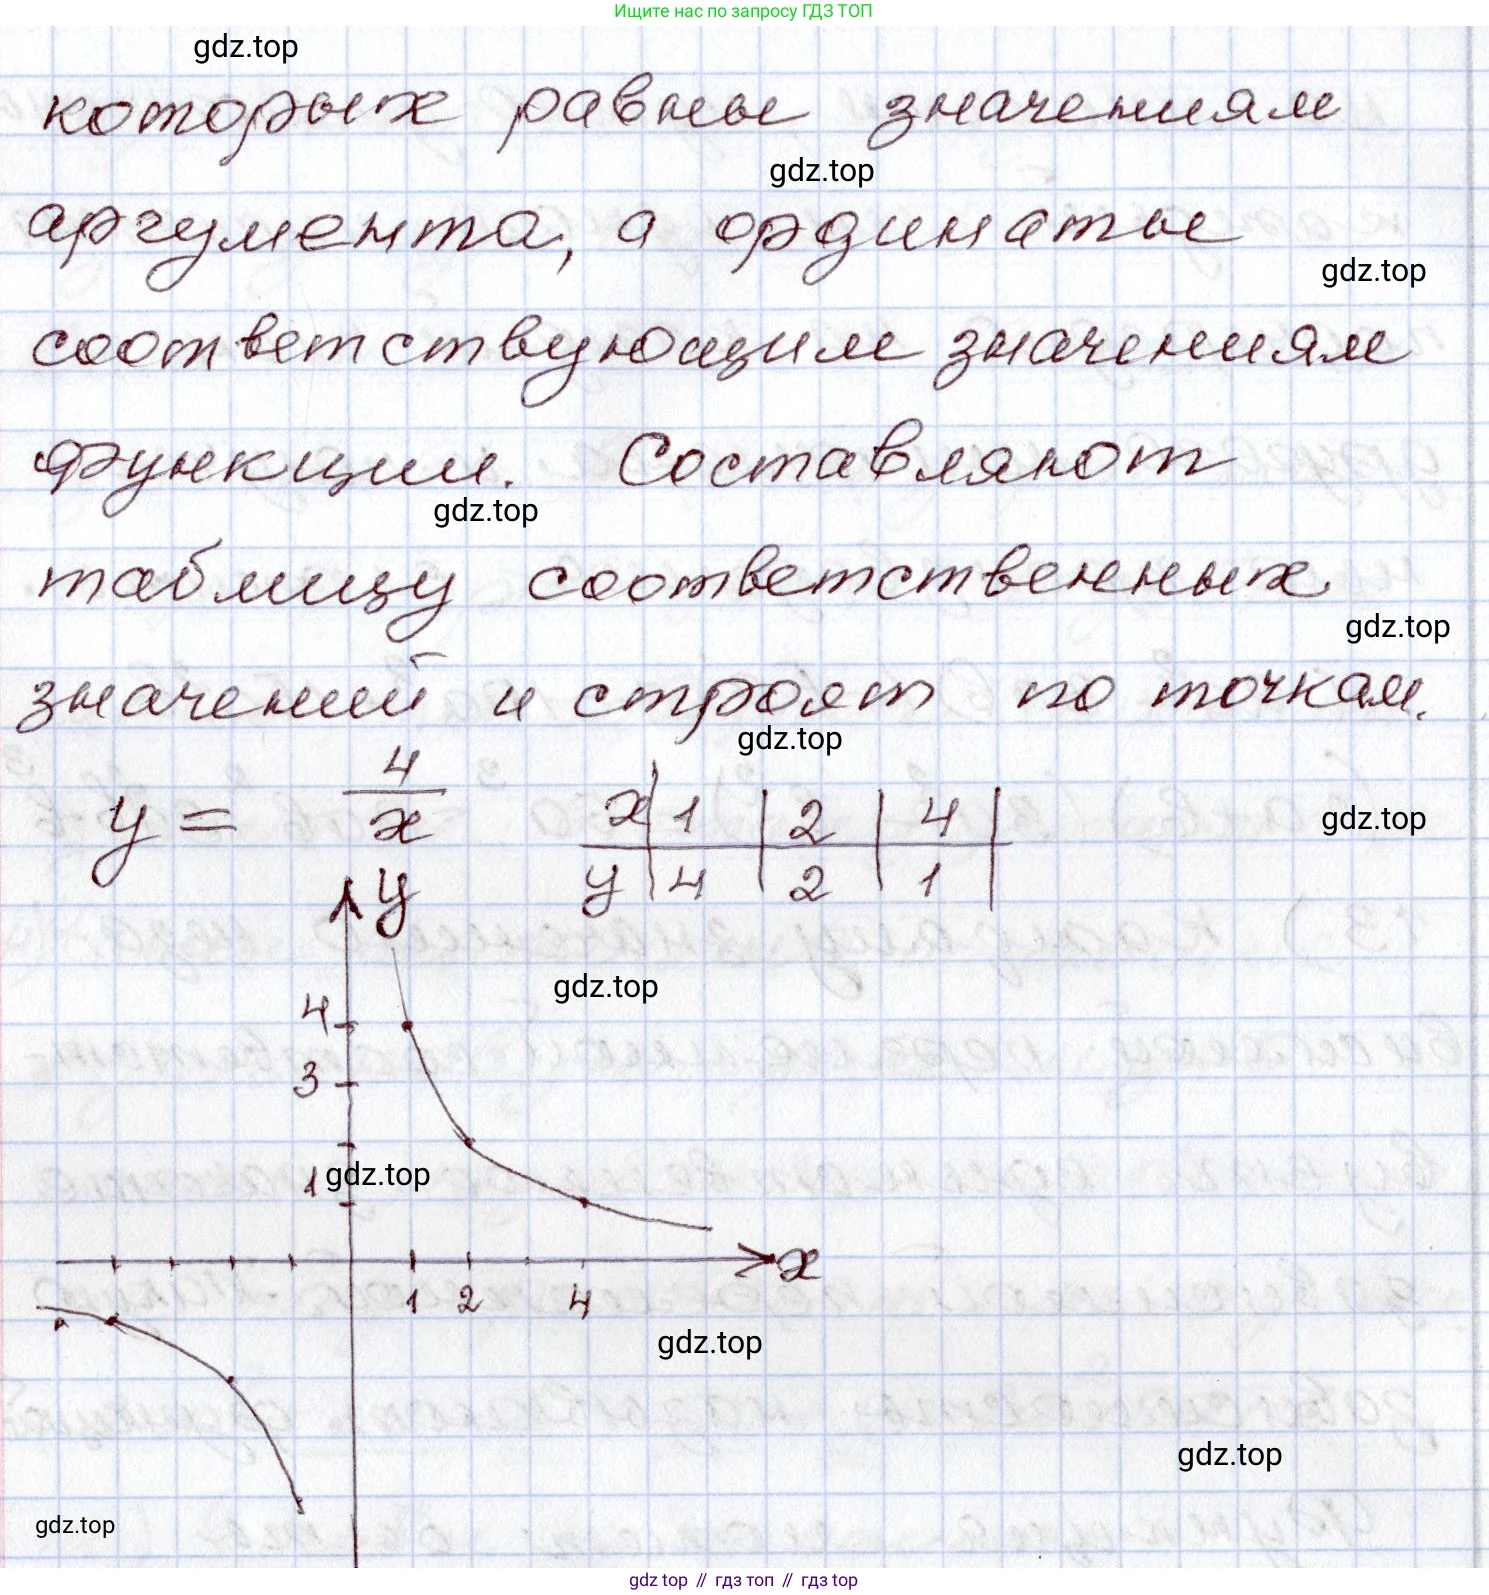 Ищите нас по запросу ГДЗ ТОП
gdz.top
которых равны значениям
gdz.top
аргумента, а ординаты
gdz.top
соответствующим значениям
функции. Составляют
gdz.top
таблицу соответственных
gdz.top
значений и строят по точкам.
gdz.top
y = 4/x
x 1 2 4
gdz.top
y 4 2 1
y
gdz.top
4
3
gdz.top
1
x
1 2 4
gdz.top
gdz.top
gdz.top
gdz top // гдз топ // gdz top